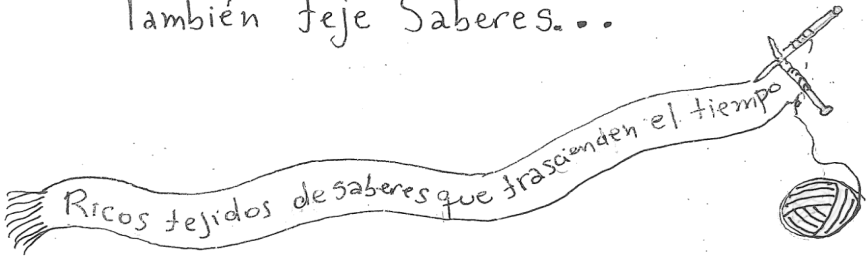 También teje Saberes...
Ricos tejidos de saberes que trascienden el tiempo